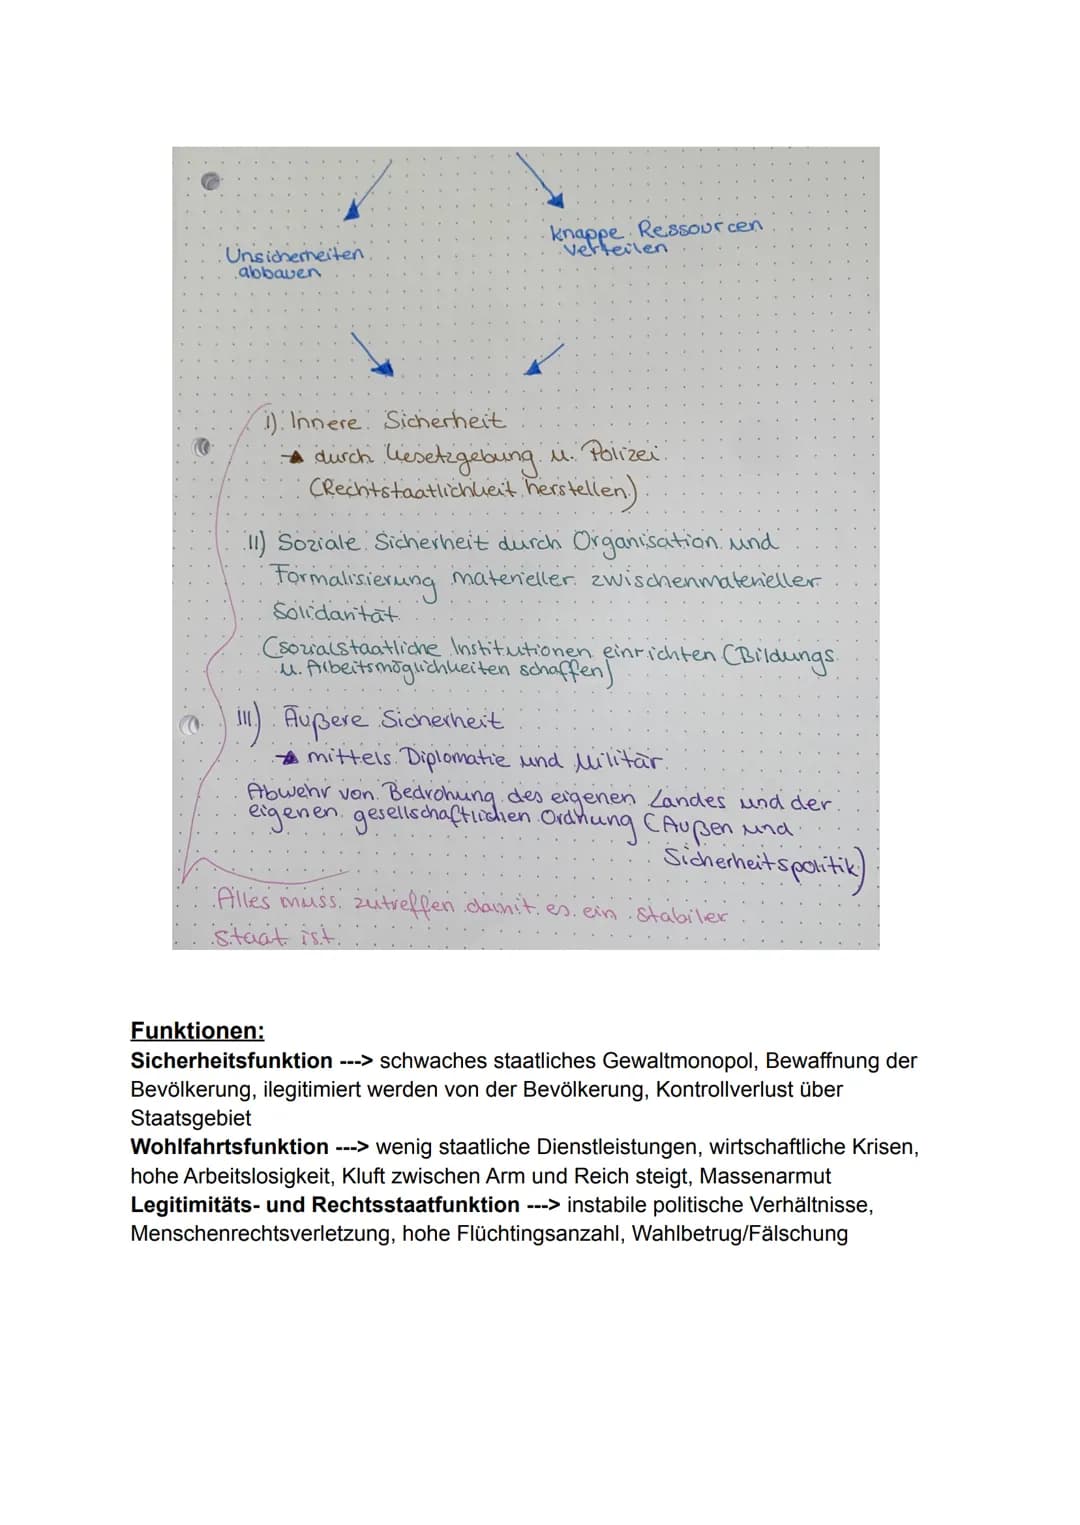 Unsicherheiten
abbauen
knappe Ressourcen
verteilen
I) Innere Sicherheit
→ durch Gesetzgebung u. Polizei
(Rechtstaatlichkeit herstellen)
II) Soziale Sicherheit durch Organisation und
Formalisierung materieller zwischenmaterieller
Solidarität
(sozialstaatliche Institutionen einrichten (Bildungs
u. Arbeitsmöglichkeiten schaffen)
III) Äußere Sicherheit
→ mittels Diplomatie und Militär
Abwehr von Bedrohung des eigenen Landes und der
eigenen gesellschaftlichen Ordnung (Außen und
Sicherheitspolitik)
Alles muss zutreffen damit es ein stabiler
Staat ist.
Funktionen:
Sicherheitsfunktion ---> schwaches staatliches Gewaltmonopol, Bewaffnung der
Bevölkerung, ilegitimiert werden von der Bevölkerung, Kontrollverlust über
Staatsgebiet
Wohlfahrtsfunktion ---> wenig staatliche Dienstleistungen, wirtschaftliche Krisen,
hohe Arbeitslosigkeit, Kluft zwischen Arm und Reich steigt, Massenarmut
Legitimitäts- und Rechtsstaatfunktion ---> instabile politische Verhältnisse,
Menschenrechtsverletzung, hohe Flüchtingsanzahl, Wahlbetrug/Fälschung